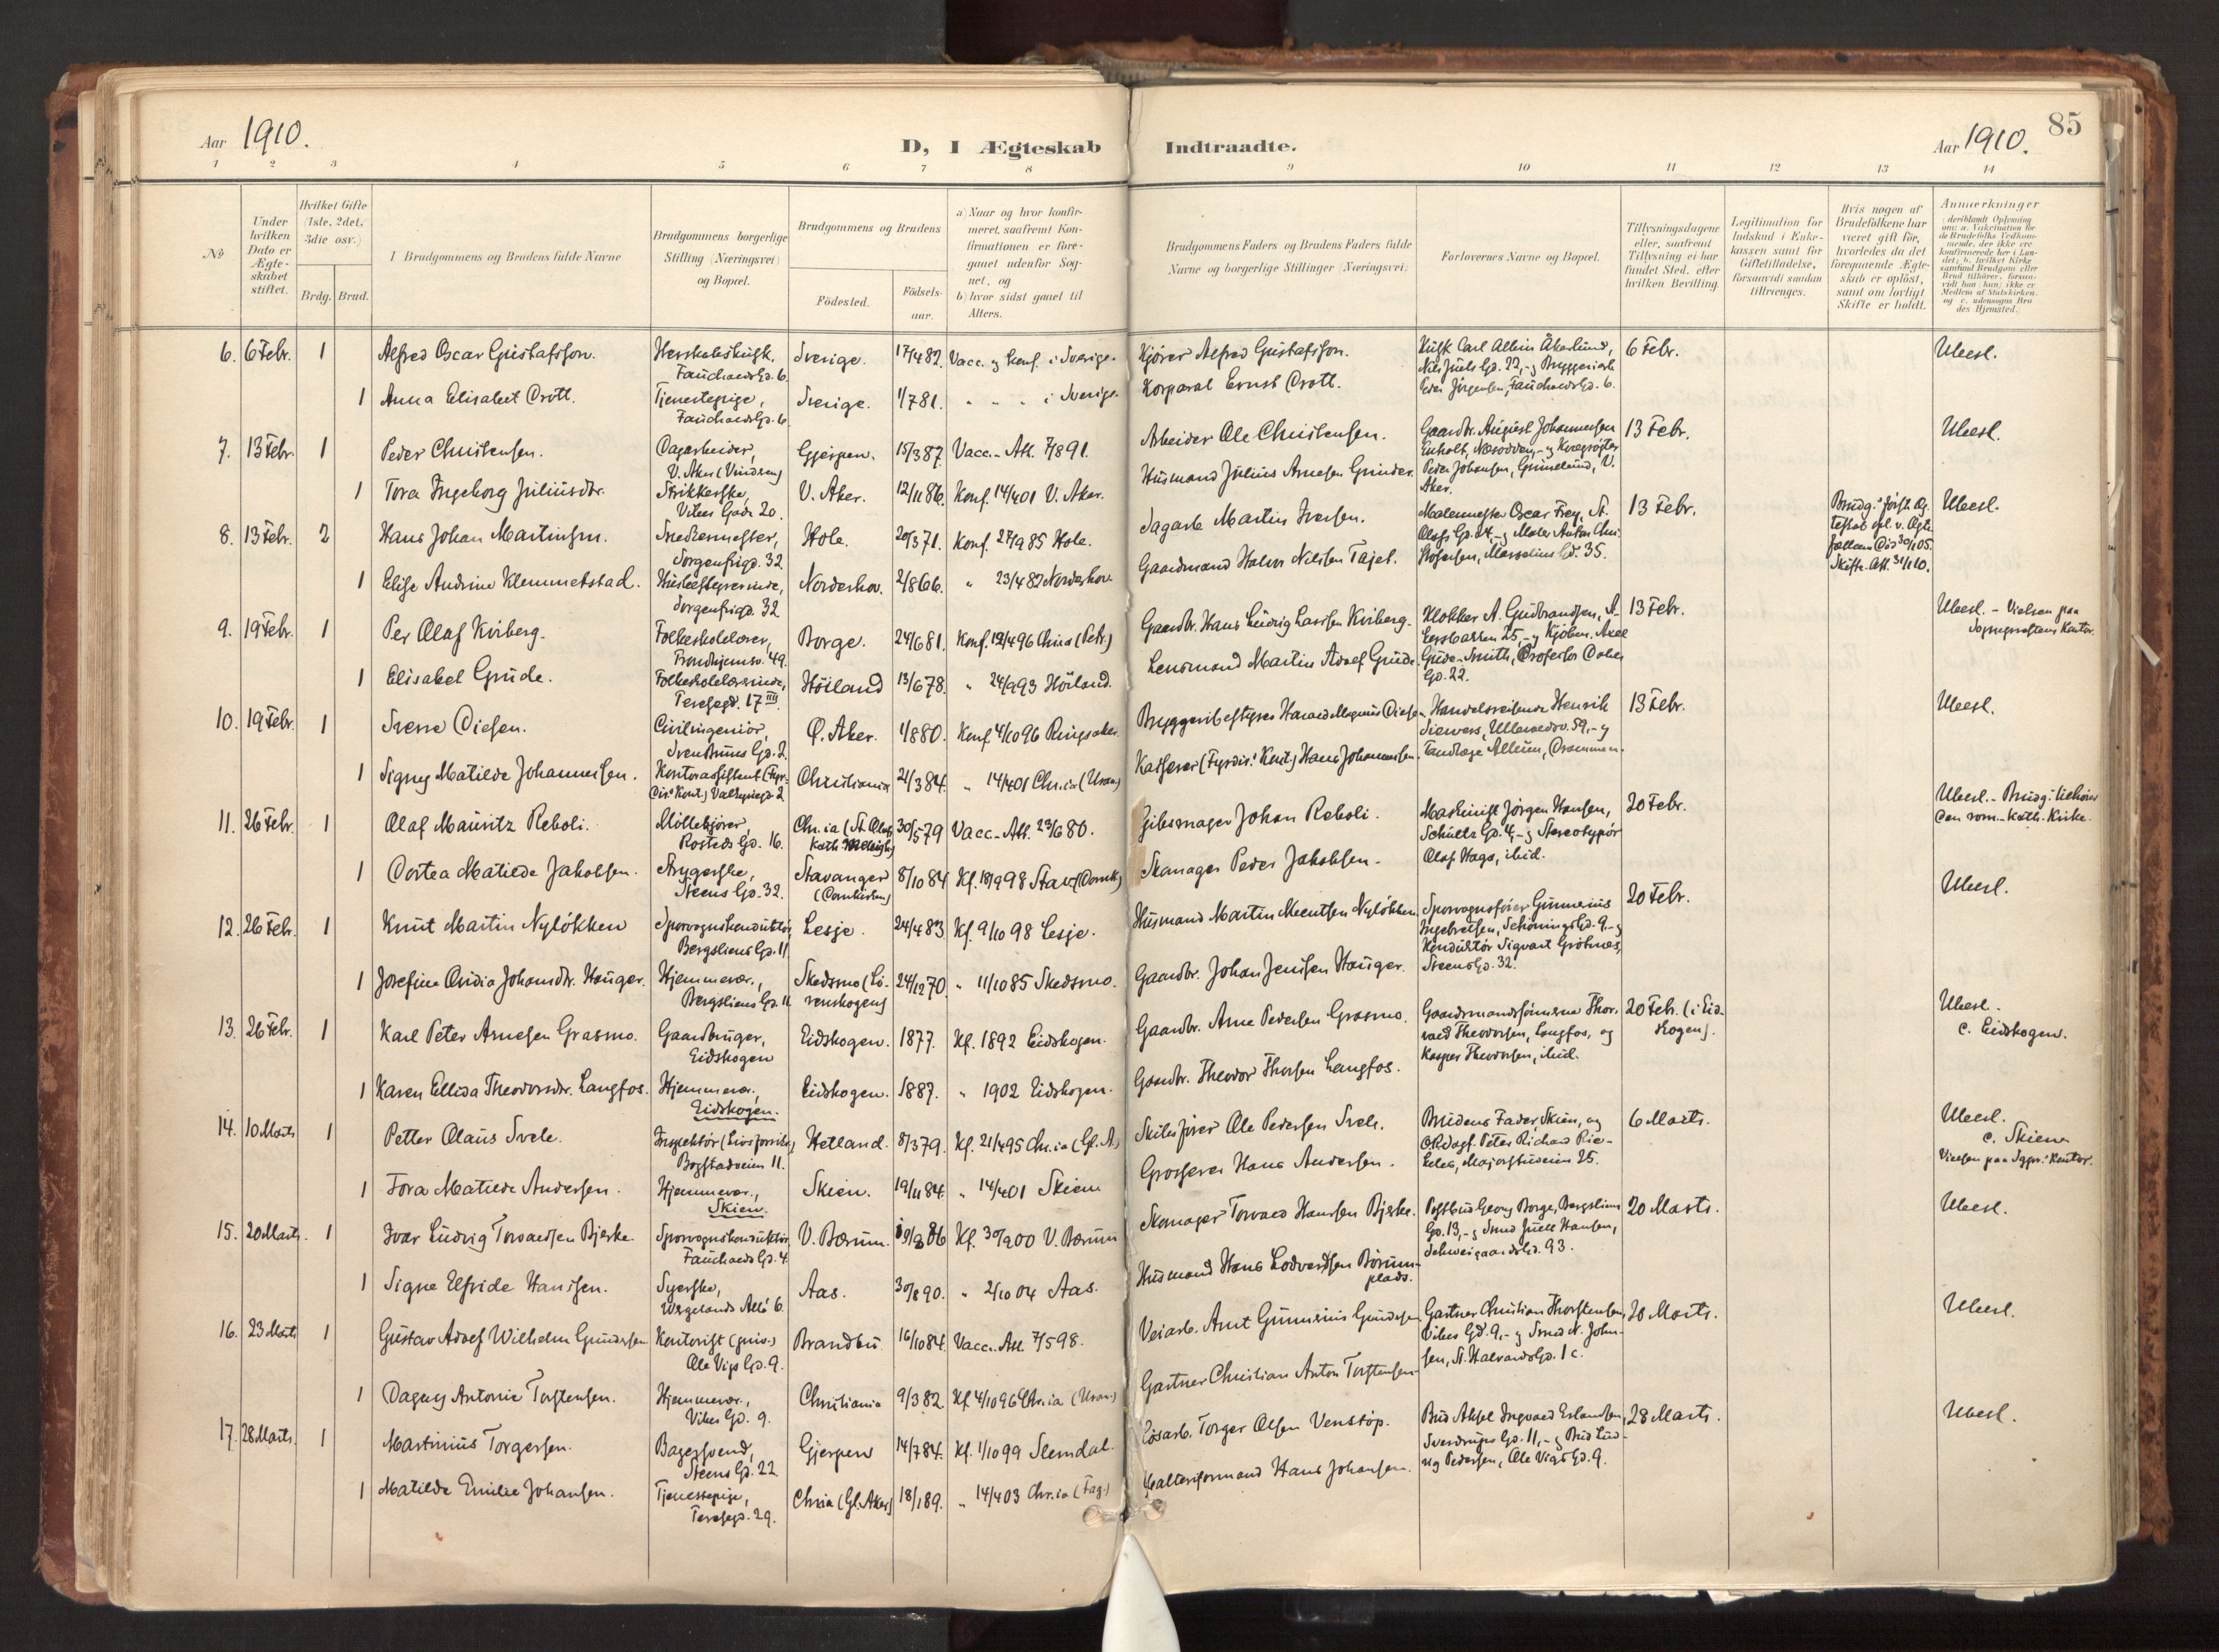 Aar 1910.
D, I Ægteskab Indtraadte.
Aar 1910.
85
1 2 3 4 5 6 7 8 9 10 11 12 13 14
No
Under hvilken Dato er Ægteskabet stiftet.
Hvilket Gifte (1ste, 2det, 3die osv.)
Brdg. Brud.
Brudgommens og Brudens fulde Navne
Brudgommens borgerlige Stilling (Næringsvei) og Bopæl.
Brudgommens og Brudens
Födested.
Födselsaar.
a) Naar og hvor konfirmeret, saafremt Konfirmationen er foregaaet udenfor Sognet, og
b) hvor sidst gaaet til Alters.
Brudgommens Faders og Brudens Faders fulde Navne og borgerlige Stillinger (Næringsvei)
Forlovernes Navne og Bopæl.
Tillysningsdagene eller, saafremt Tillysning ei har fundet Sted, efter hvilken Bevilling.
Legitimation for Indskud i Enkekassen samt for Giftetilladelse, forsaavidt saadan tiltrænges.
Hvis nogen af Brudefolkene har været gift för, hvorledes da det foregaaende Ægteskab er oplöst, samt om lovligt Skifte er holdt.
Anmærkninger
6. 6 Febr. 1 Alfred Oscar Gustafsson. Herskabskusk, Fauchaldsgd. 6. Sverige. 17/4 82. Vacc. og konf. i Sverige. Kjører Alfred Gustafsson. Kusk Carl Albin Åkerlund, Nils Juels Gd. 22, - og Bryggeriarb. Peder Jørgensen, Fauchaldsgd. 6. 6 Febr. Ubesl.
1 Anna Elisabet Drott. Tjenestepige, Fauchaldsgd. 6. Sverige. 1/7 81. " " " i Sverige. Korporal Ernst Drott.
7. 13 Febr. 1 Peder Christensen. Dagarbeider, V. Aker (Vindern) Gjerpen. 15/3 87. Vacc.-Att. 7/8 91. Arbeider Ole Christensen. Gaardbr. August Johannesen Enholt, Næsodden, - og Kvægrøgter Peder Johansen, Grimelund, V. Aker. 13 Febr. Ubesl.
1 Tora Ingeborg Juliusdtr. Strikkerske, Vibes Gade 20. V. Aker. 12/11 86. Konf. 14/4 01 V. Aker. Husmand Julius Arnesen Grinder.
8. 13 Febr. 2 Hans Johan Martinsen. Snedkermester, Sorgenfrigd. 32 Hole. 20/3 71. Konf. 27/9 85 Hole. Dagarb. Martin Iversen. Malermester Oscar Frey, St. Olafs Gd. 24, - og Maler Anton Christofersen, Marselius Gd. 35. 13 Febr. Brudg.s første Ægteskab opl. v. Ægtefællens Død 30/1 05. Skifte-Att. 31/1 10. Ubesl.
1 Elise Andrine Klemmetstad. Husbestyrerinde, Sorgenfrigd. 32 Norderhov. 2/8 66. " 23/4 82 Norderhov. Gaardmand Halvor Nilsen Tajet.
9. 19 Febr. 1 Per Olaf Kviberg. Folkeskolelærer, Trondhjemsv. 49. Borge. 24/6 81. Konf. 19/4 96 Chria (Petr.) Gaardbr. Hans Ludvig Larsen Kviberg. Klokker A. Gudbrandsen, Akersbakken 25, - og Kjøbm. Axel Gude-Smith, Professor Dahls Gd. 22. 13 Febr. Ubesl. - Vielsen paa Sognepræstens Kontor.
1 Elisabet Grude. Folkeskolelærerinde, Teresegd. 17 III Höiland 13/6 78. " 24/9 93 Höiland. Lensmand Martin Adolf Grude.
10. 19 Febr. 1 Sverre Diesen. Civilingeniør, Sven Bruns Gd. 2. Ö. Aker. 1/8 80. Konf. 4/10 96 Ringsaker. Bryggeribestyrer Harald Magnus Diesen. Handelsreisende Henrik Sievers, Ullevoldsv. 59, - og Tandlæge Alluin, Drammen. 13 Febr. Ubesl.
1 Signy Matilde Johannesen. Kontorassistent (Fyrdir.s Kont.) Valkyriegd. 2 Christiania 21/3 84. " 14/4 01 Chr.ia (Uran.) Kasserer (Fyrdir.s Kont.) Hans Johannesen.
11. 26 Febr. 1 Olaf Mauritz Reboli. Møllekjører, Rosteds Gd. 16. Chr.ia (St. Olafs kath. Menigh.) 30/5 79 Vacc.-Att. 23/6 80. Gibsmager Johan Reboli. Maskinist Jørgen Hansen, Schultz Gd. 4, - og Stereotypør Olaf Haga, ibid. 20 Febr. Ubesl. - Brudg. tilhører den rom.-kath. Kirke.
1 Dortea Matilde Jakobsen. Strygerske, Steens Gd. 32. Stavanger (Domkirken) 8/10 84 Kf. 18/9 98 Stav. (Domk.) Skomager Peder Jakobsen.
12. 26 Febr. 1 Knut Martin Nyløkken Sporvognskonduktør, Bergsliens Gd. 11. Lesje. 24/4 83 Kf. 9/10 98 Lesje. Husmand Martin Knutsen Nyløkken. Sporvognsfører Gunerius Ingebretsen, Schönings Gd. 9, - og Konduktør Sigvart Gröttnes, Steens Gd. 32. 20 Febr. Ubesl.
1 Josefine Ovidia Johansdtr. Hauger. Hjemmevær., Bergsliens Gd. 11 Skedsmo (Lörenskogen) 24/12 70. " 11/10 85 Skedsmo. Gaardbr. Johan Jensen Hauger.
13. 26 Febr. 1 Karl Peter Arnesen Grasmo. Gaardbruger, Eidskogen Eidskogen. 1877. Kf. 1892 Eidskogen. Gaardbr. Arne Pedersen Grasmo. Gaardmandssønnerne Thorvald Theodorsen, Langfos, og Kasper Theodorsen, ibid. 20 Febr. (i Eidskogen). Ubesl. c. Eidskogen.
1 Karen Ellida Theodorsdtr. Langfos. Hjemmevær. Eidskogen. Eidskogen. 1887. " 1902 Eidskogen. Gaardbr. Theodor Thorsen Langfos.
14. 10 Marts 1 Petter Olaus Svele. Inspektør (Livsforsikr.) Bogstadveien 11. Hetland. 8/3 79. Kf. 21/4 95 Chr.ia (Gl. A.) Skibsfører Ole Pedersen Svele. Brudens Fader, Skien, og Peter Richard Majorstuveien 25. 6 Marts. Ubesl. c. Skien Vielsen paa Sgpr.s Kontor.
1 Tora Matilde Andersen. Hjemmevær., Skien. Skien. 19/11 84. " 14/4 01 Skien Grosserer Hans Andersen.
15. 20 Marts. 1 Ivar Ludvig Torvaldsen Bjerke. Sporvognskonduktør, Fauchalds Gd. 4. V. Bærum. 19/9 86 Kf. 30/9 00 V. Bærum Skomager Torvald Hansen Bjerke. Postbud Georg Borge, Bergsliens Gd. 13, - og Smed Juell Hansen, Schweigaards Gd. 93. 20 Marts. Ubesl.
1 Signe Elfride Hansen. Syerske, Wergelands Allé 6. Aas. 30/8 90. " 2/10 04 Aas. Husmand Hans Lodvardsen Börumplads.
16. 23 Marts 1 Gustav Adolf Wilhelm Gundersen Kontorist (priv.) Ole Vigs Gd. 9. Brandbu 16/10 84. Vacc. Att. 7/5 98. Veiarb. Amt Gunerius Gundersen. Gartner Christian Thorstensen, Vibes Gd. 9, - og Smed N. Johnsen, St. Halvards Gd. 1 c. 20 Marts. Ubesl.
1 Dagny Antonie Torstensen. Hjemmevær., Vibes Gd. 9. Christiania 9/3 82. Kf. 4/10 96 Chr.ia (Uran.) Gartner Christian Anton Torstensen.
17. 28 Marts. 1 Martinius Torgersen. Bagersvend, Steens Gd. 22 Gjerpen 14/7 84. Kf. 1/10 99 Slemdal. Løsarb. Torger Olsen Venstöp. Bud Aksel Ingvald Erlandsen, Sverdrups Gd. 11, - og Bud Ludvig Pedersen, Ole Vigs Gd. 9. 28 Marts. Ubesl.
1 Matilde Emilie Johansen. Tjenestepige, Teresegd. 29. Chria (Gl. Aker) 18/1 89. " 14/4 03 Chr.ia (Fag.) Hans Johansen.